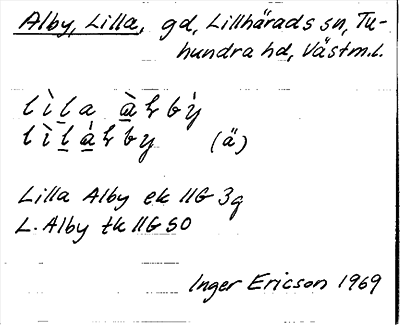 Alby, Lilla, gd, Lillhärads sn, Tu-
hundra hd, Västm.l.
lìla àɫbý
lìláɫby (ä)
Lilla Alby ek 11G 3g
L. Alby tk 11G SO
Inger Ericson 1969